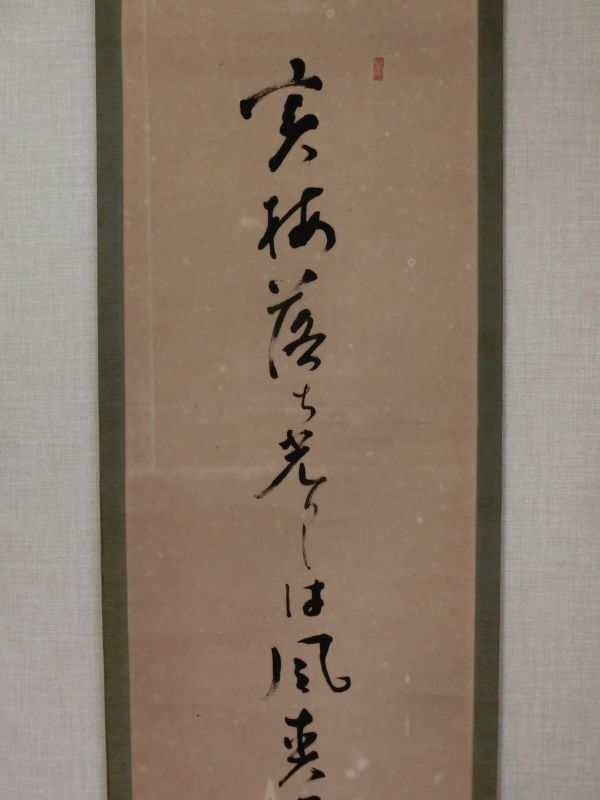 実梅落ち光りしは風爽